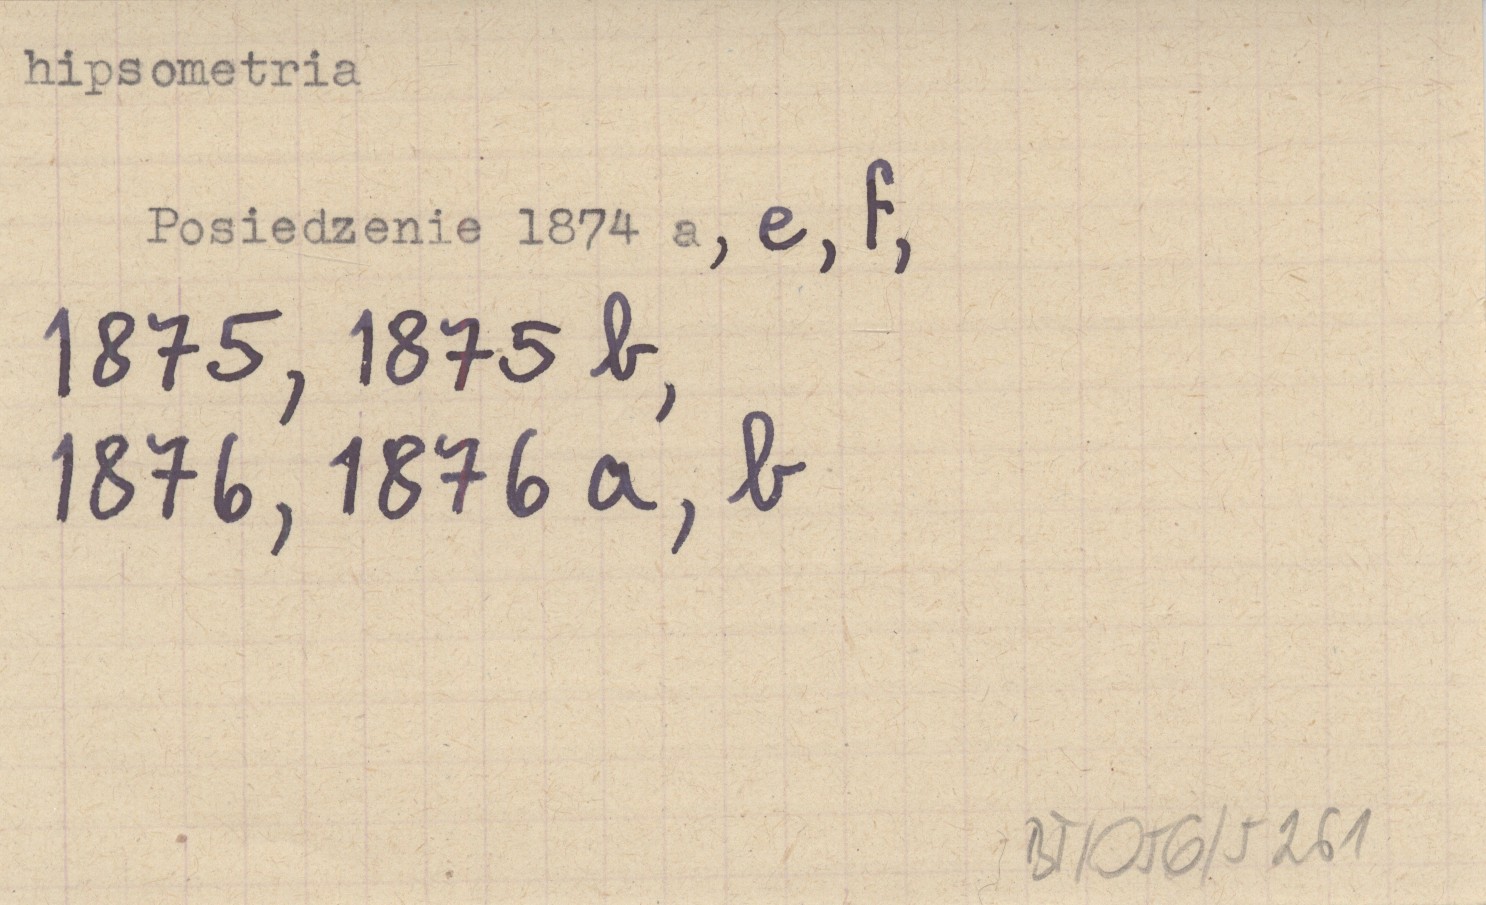 hipsometria
Posiedzenie 1874 a, e, f,
1875, 1875 b,
1876, 1876 a, b
BT/056/5261